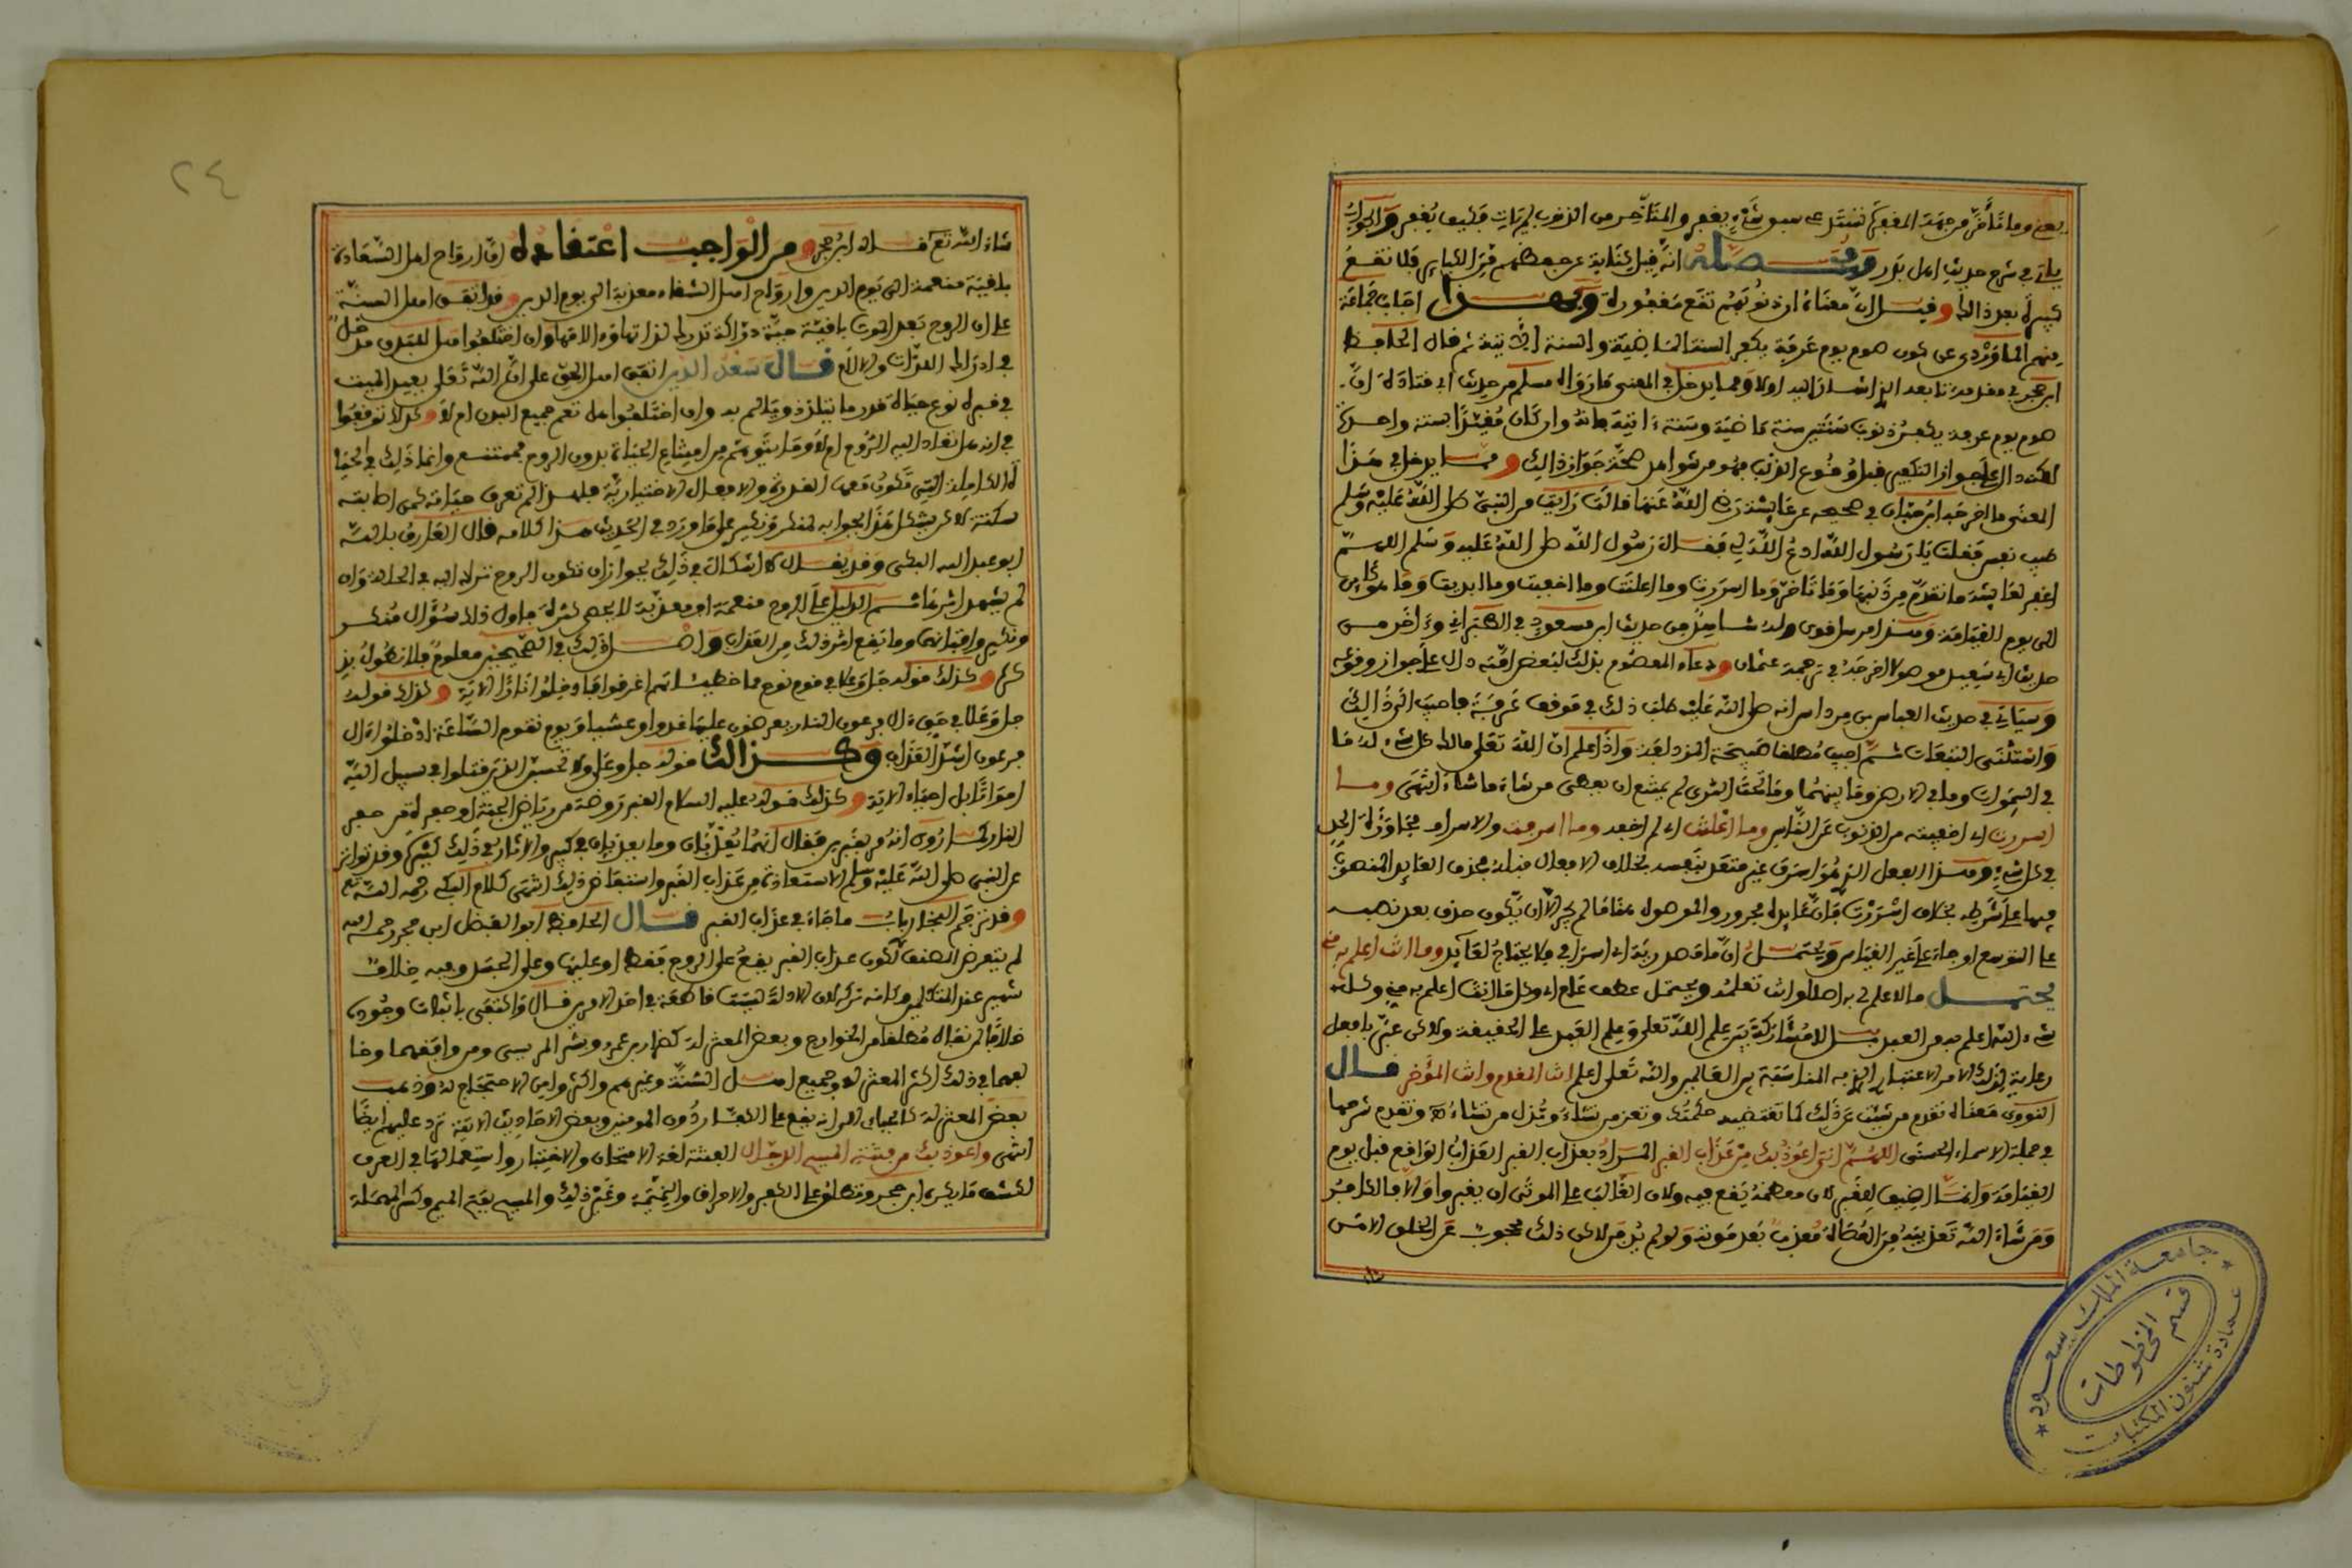 يعني وما تأخر من جهة المغفرة تستدعي سبق شيء يغفر والمتأخر من الذنوب لم يات فكيف يُغفر والجواب
ياتي في شرح حديث اهل بدر ومحصله انه قيل كناية عن حفظهم من الكبائر فلا تقع
كبيرة بعد ذلك وقيل ان معناه ان ذنوبهم تقع مغفورة وبهذا اجاب جماعة
منهم الماوردي عن كون صوم يوم عرفة يكفر السنة الماضية والسنة الآتية ثم قال الحافظ
ابن حجر في مقدمتنا بعد ان اشار اليه اولا ومما يدخل في المعنى ما رواه مسلم من حديث ابي قتادة ان
صوم يوم عرفة يكفر ذنوب سنتين سنة ماضية وسنة ءاتية فانه وان كان مقيدا بسنة واحدة
لكنه دال على جواز التكفير قبل وقوع الذنب فهو من شواهد صحة جواز ذلك ومما يدخل في هذا
المعنى ما اخرجه ابن حبان في صحيحه عن عائشة رضي الله عنها قالت رايت من النبي صلى الله عليه وسلم
طيب نفس فقلت يا رسول الله ادع الله لي فقال رسول الله صلى الله عليه وسلم اللهم
اغفر لعائشة ما تقدم من ذنبها وما تاخر وما اسررت وما اعلنت وما اخفيت وما ابديت وما هو كائن
الى يوم القيامة
حديث ابي سعيد هو هولا اخرجه في ترجمة عثمان ودعاء المعصوم بذلك لبعض امته دال على جواز وقوعه
وسياتي في حديث العباس بن مرداس انه صلى الله عليه طلب ذلك في موقف عرفة فاجيب الى ذلك
واستثنى التبعات ثم اجيب مطلقا صبيحة المزدلفة واذا علم ان الله تعلى مالك كل شيء له ما
في السموات وما في الارض وما بينهما وما تحت الثرى لم يمتنع ان يعطي من شاء ما شاء انتهى وما
اسررت اي اخفيته من الذنوب عن الناس وما اعلنت اي لم اخفه وما اسرفت والاسراف مجاوزة الحد
في كل شيء وهذا الفعل الذي هو اسرف غير متعد بنفسه بخلاف الافعال قبله محذف العائد المنصوب
فيها على شرطه بخلاف اسررت فان عائده مجرور والموصول
على التوسع او جاء على غير القياس ويحتمل ان ما مصدرية اي اسرافي فلا يحتاج لعائد وما انت اعلم به مني
يحتمل ما لا علم لي به اصلا وانت تعلمه ويحتمل عطف عام اي وكل ما انت اعلم به مني وكل
شيء الله اعلم به من العبد بل لا مشاركة بين علم الله تعلى وعلم العبد على الحقيقة ولاكن عبر بافعل
رعاية لذلك الامر الاعتباري الذي به المناسبة بين العالمين والله تعلى اعلم انت المقدم وانت المؤخر قال
النووي معناه تقدم من شئت عن ذلك كما تقتضيه حكمتك وتعز من تشاء وتذل من تشاء وتقدم شرحها
في جملة الاسماء الحسنى اللهم اني اعوذ بك من عذاب القبر المراد بعذاب القبر العذاب الواقع قبل يوم
القيامة وانما اضيف للقبر لان معظمه يقع فيه ولان الغالب على الموتى ان يقبروا والا فالكافر
ومن شاء الله تعذيبه من العصاة معذب بعد موته ولو لم يدفن لاكن ذلك محجوب عن الخلق الا من
شاء الله تعلى قال ابن حجر ومن الواجب اعتقاده ان ارواح اهل السعادة
باقية منعمة الى يوم الدين وارواح اهل الشقاء معذبة الى يوم الدين وقد اتفق اهل السنة
على ان الروح بعد الموت باقية حية دراكة تدرك لذاتها وءالامها وان اختلفوا هل للبدن مدخل
في ادراك اللذات والآلام قال سعد الدين اتفق اهل الحق على ان الله تعلى يعيد للميت
في قبره نوع حياة قدر ما يتلذذ ويتالم به وان اختلفوا هل تعم جميع البدن ام لا وكذلك توقفوا
في انه هل تعاد اليه الروح ام لا وما يتوهم من امتناع الحياة بدون الروح فممتنع وانما ذلك في الحيا
ة الكاملة التي تكون معها القدرة والافعال الاختيارية فلهذا لم تعرف حياته كمن اصابته
سكتة لاكن يشكل هذا بجوابه لمنكر ونكير على ما ورد في الحديث هذا كلامه قال العارف بالله
ابو عبد الله البكي وقد يقال لا اشكال في ذلك لجواز ان تكون الروح تتراءا اليه في الحالة وان
لم يشهد اثرها ثم الدليل على الروح منعمة او معذبة لا يحصى كثرة فاول ذلك سؤال منكر
ونكير واقتباتهما وما يقع اثر ذلك من العذاب واصل ذلك في الصحيحين معلوم فلا نطول بذ
كره وكذلك قوله جل وعلا في قوم نوح مما خطيئاتهم اغرقوا فادخلوا نارا الاية وكذلك قوله
جل وعلا في حق ءال فرعون النار يعرضون عليها غدوا وعشيا ويوم تقوم الساعة ادخلوا ءال
فرعون اشد العذاب وكذلك قوله جل وعلا ولا تحسبن الذين قتلوا في سبيل الله
امواتا بل احياء الاية وكذلك قوله عليه السلام القبر روضة من رياض الجنة او حفرة من حفر
النار وكما روي انه مر بقبرين فقال انهما يعذبان وما يعذبان في كبير والاثار في ذلك كثيرة وقد تواتر
عن النبي صلى الله عليه وسلم الاستعاذة من عذاب القبر واستفاض ذلك انتهى كلام البكي رحمه الله تع
وقد ترجم البخاري باب ما جاء في عذاب القبر قال الحافظ ابو الفضل ابن حجر رحمه الله
لم يتعرض المصنف لكون عذاب القبر يقع على الروح فقط او عليها وعلى الجسد وفيه خلاف
شهير عند المتكلمين وكانه تركه لان الادلة ليست قاطعة في احد الامرين قال واكتفى باثبات وجوده
خلافا لمن نفاه مطلقا من الخوارج وبعض المعتزلة كضرار بن عمرو وبشر المريسي ومن وافقهما وخا
لفهما في ذلك اكثر المعتزلة وجميع اهل السنة وغيرهم واكثروا من الاحتجاج له وذهب
بعض المعتزلة كالجبائي الى انه يقع على الكفار دون المومنين وبعض الاحاديث الاتية ترد عليهم ايضا
انتهى واعوذ بك من فتنة المسيح الدجال الفتنة لغة الامتحان والاختبار واستعمالها في العرف
لكشف ما يكره ابن حجر وتطلق على الكفر والاحراق والنميمة وغير ذلك والمسيح بفتح الميم وكسر المهملة
٢٤
جامعة الملك سعود
عمادة شئون المكتبات
قسم المخطوطات